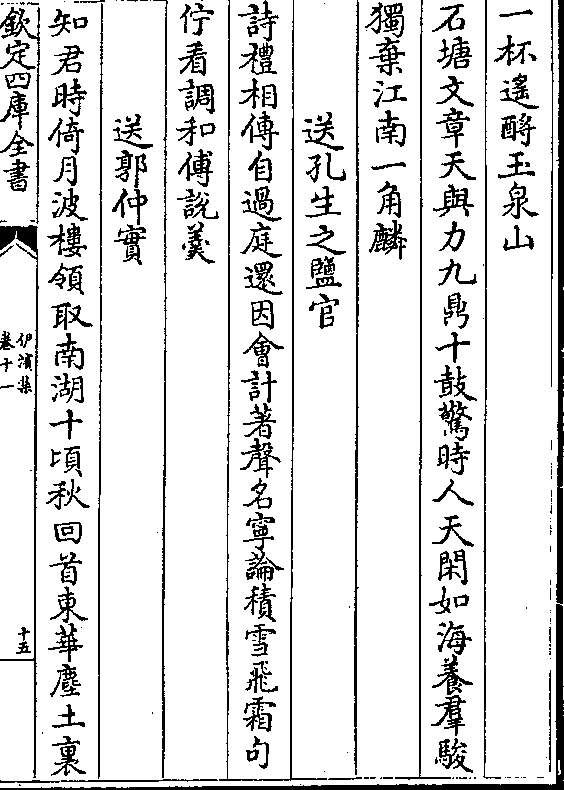 一杯遙酹玉泉山
石塘文章天與力九鼎十鼓驚時人天閑如海養羣駿
獨棄江南一角麟
送孔生之鹽官
詩禮相傳自過庭還因會計著聲名寧論積雪飛霜句
佇看調和傅說羹
送郭仲實
知君時倚月波樓領取南湖十頃秋回首東華塵土裏
欽定四庫全書
伊濱集
卷十一
十五